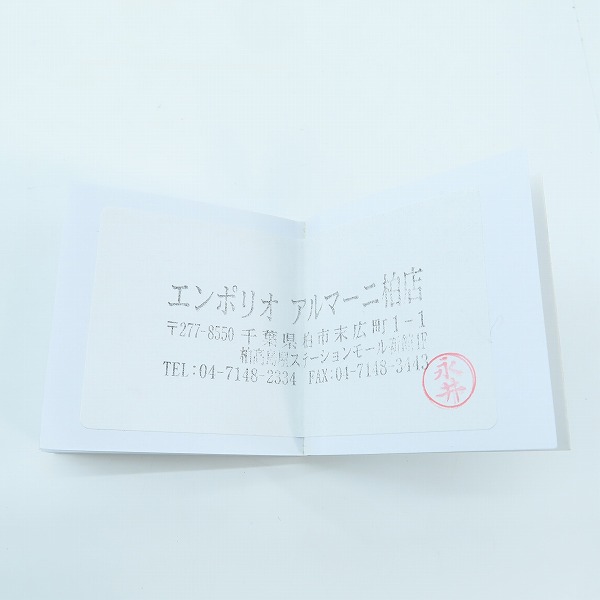 エンポリオ アルマーニ柏店
〒277-8550 千葉県柏市末広町1-1
柏髙島屋ステーションモール新館1F
TEL:04-7148-2334 FAX:04-7148-3443
永井